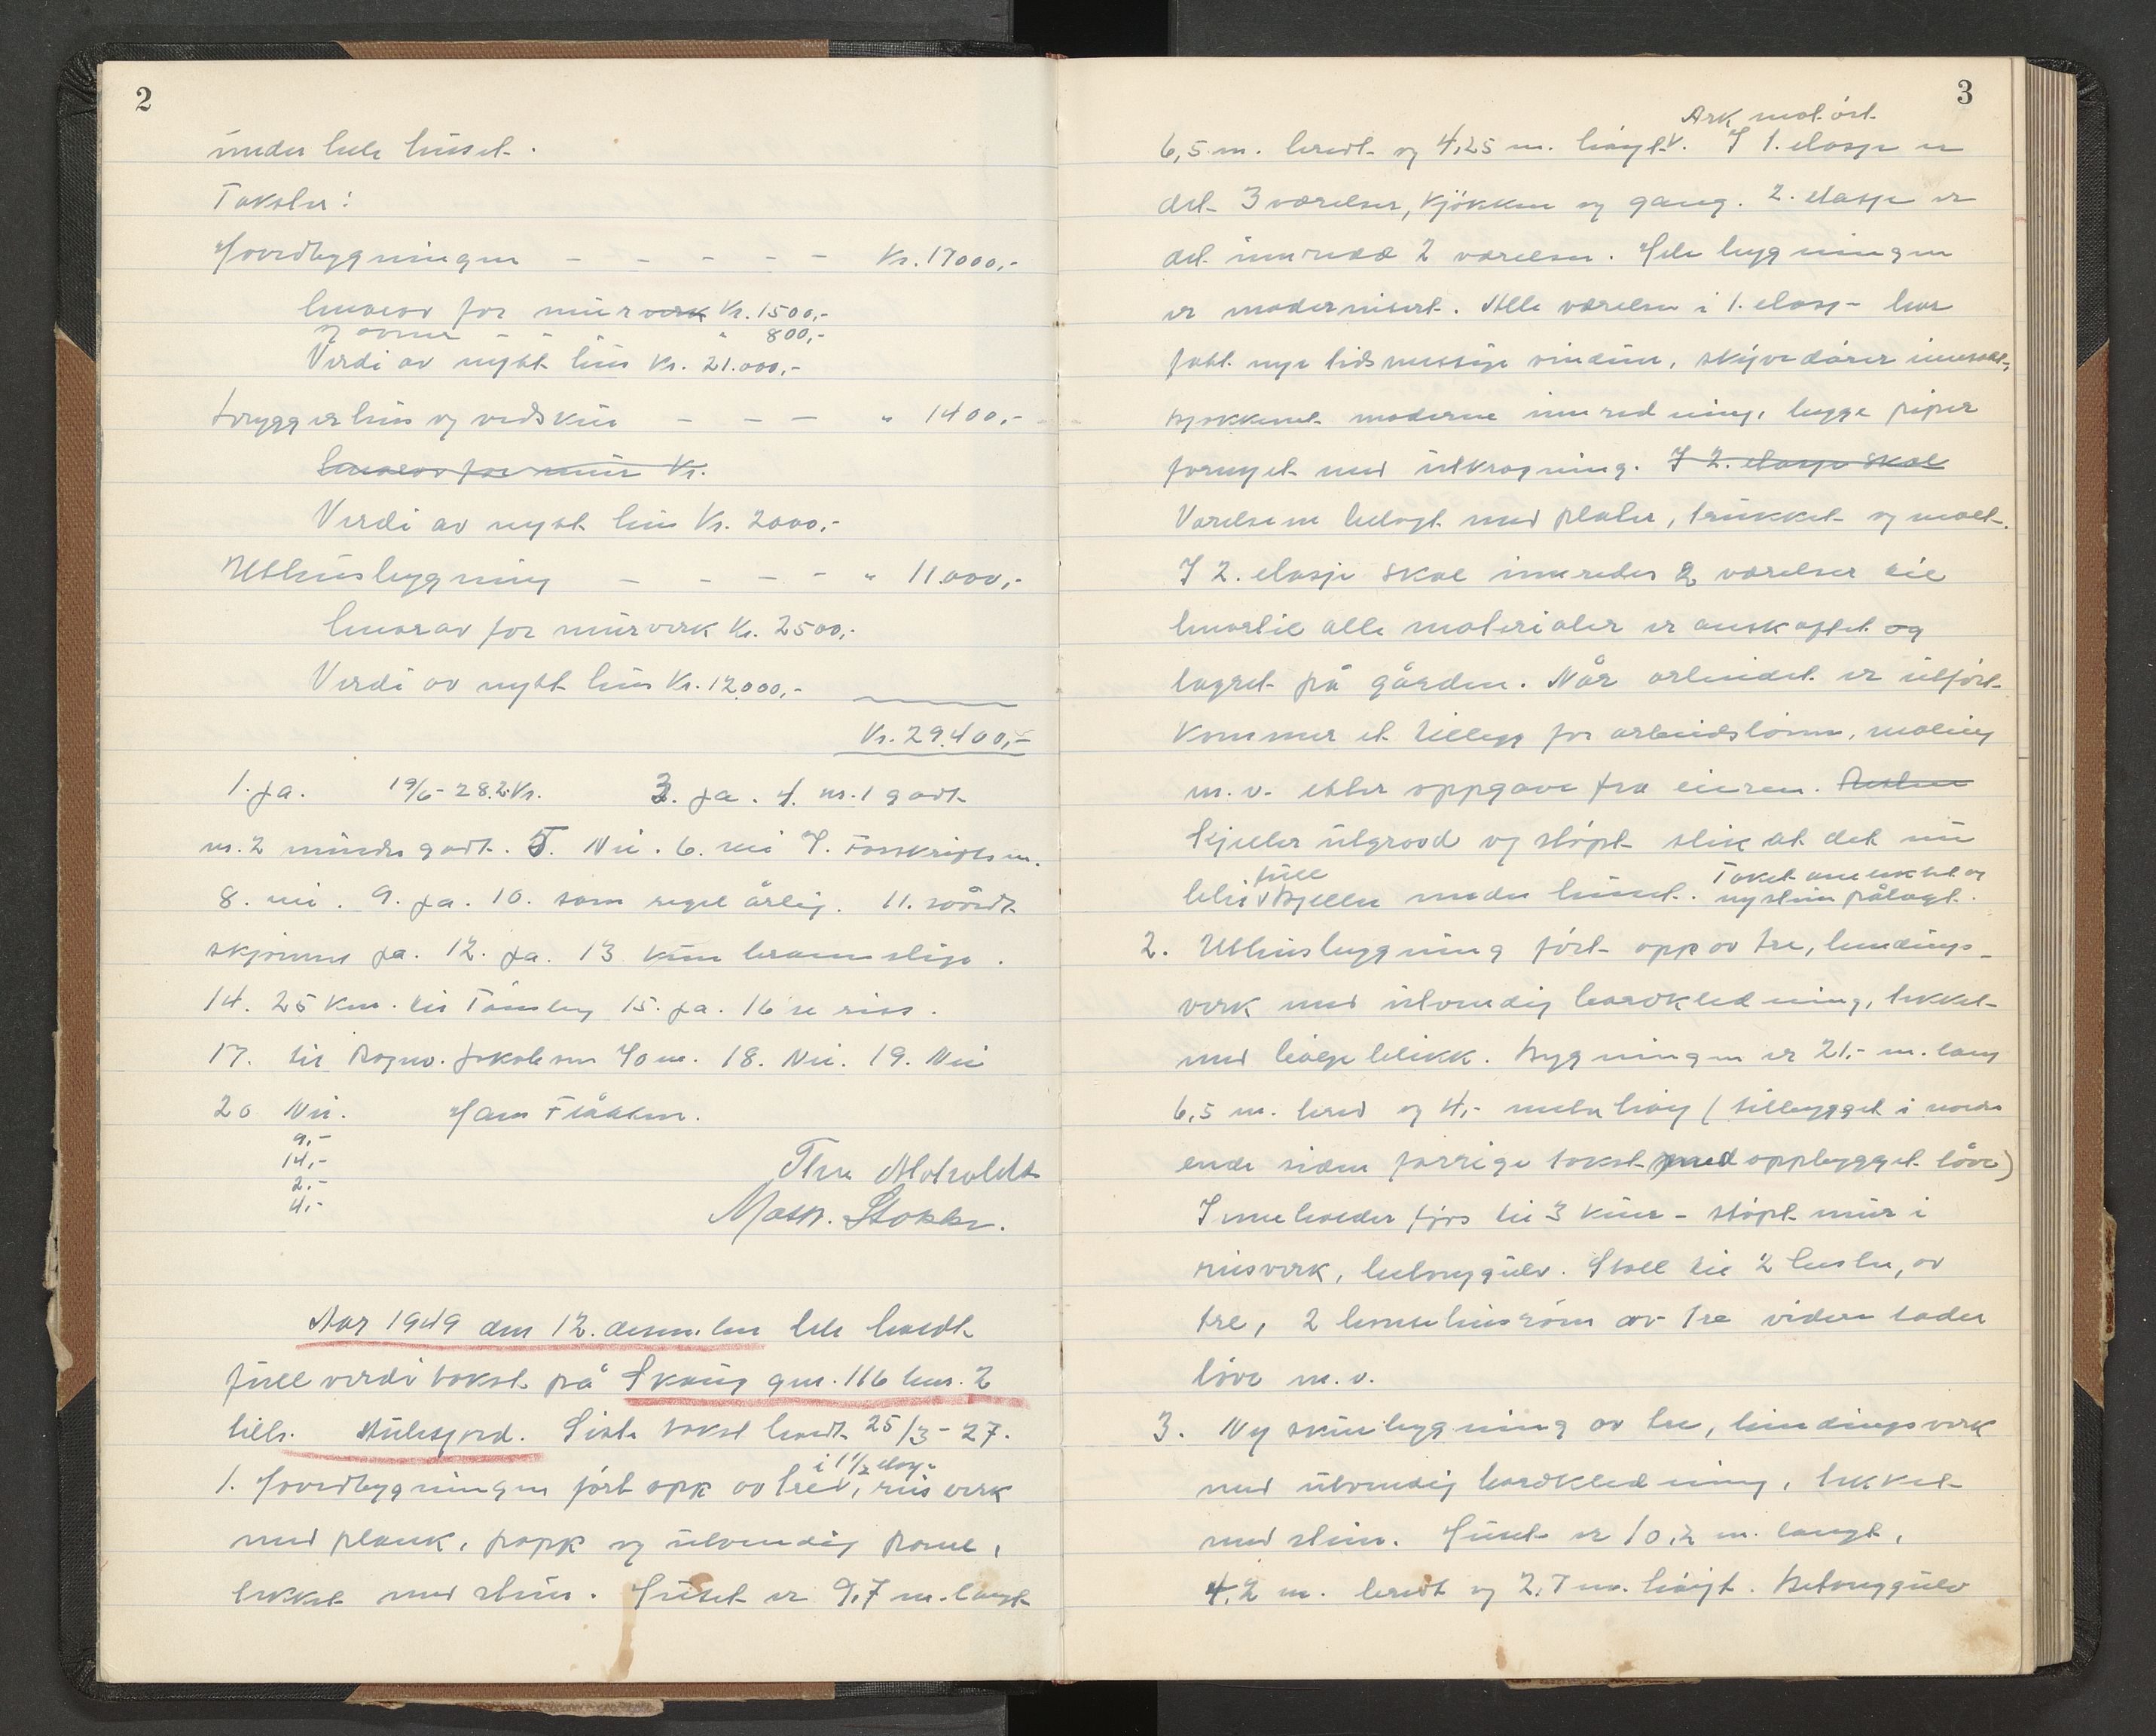 2
under hele huset.
Takster:
Hovedbygningen - - - - - Kr. 17000,-
hvorav for murverk Kr. 1500,-
og ovner - - " " 800,-
Verdi av nytt hus Kr. 21.000,-
Bryggerhus og vedskur - - - " 1400,-
hvorav for mur Kr.
Verdi av nytt hus Kr. 2000,-
Uthusbygning - - - - " 11.000,-
hvorav for murverk Kr. 2500,-
Verdi av nytt hus Kr. 12.000,-
Kr. 29.400,-
1. Ja. 19/6-28. 2. Kr. 3. Ja. 4. nr. 1 godt
nr. 2 mindre godt. 5. Nei. 6. nei 7. Forskriftsm.
8. nei. 9. Ja. 10. som regel årlig. 11. såvidt
skjønnes ja. 12. Ja. 13 kun brannslige.
14. 25 km. til Tønsberg 15. Ja. 16 se riss.
17. til Ragnv. Jakobsen 70 m. 18. Nei. 19. Nei
20 Nei. Hans Flåtten.
9,-
14,-
2,-
4,-
Thv.
Math. Stokke.
Aar 1949 den 12. desember ble holdt
full verdi takst på Skaug gnr. 116 bnr. 2
tilh. Siste takst holdt 25/3-27.
i 1 1/2 etasje
1. Hovedbygningen ført opp av tre v, reisverk
med plank, papp og utvendig panel,
tekket med sten. Huset er 9,7 m. langt
3
Ark mot øst
6,5 m. bredt og 4,25 m. høyt v. I 1. etasje er
det 3 værelser, kjøkken og gang. 2. etasje er
det innredd 2 værelser. Hele bygningen
er modernisert. Alle værelser i 1. etasj- har
fått nye tidsmessige vinduer, skyvedører innsatt,
kjøkkenet moderne innredning, begge piper
fornyet med utkragning. I 2. etasje skal
Værelsene belagt med plater, trukket og malt.
I 2. etasje skal innredes 2 værelser til
hvortil alle materialer er anskaffet og
lagret på gården. Når arbeidet er utført
kommer et tillegg for arbeidslønn, maling
m.v. etter oppgave fra eieren.
Kjeller utgravd og støpt slik at det nu
full Taket omlektet og
blir v kjeller under huset. ny sten pålagt.
2. Uthusbygning ført opp av tre, bindings-
verk med utvendig bordkledning, tekket
med bølgeblikk. Bygningen er 21,- m. lang
6,5 m. bred og 4,- meter høy (tilbygget i nordre
ende siden forrige takst med oppbygget låve)
Inneholder fjøs til 3 kuer - støpt mur i
reisverk, betonggulv. Stall til 2 hester, av
tre, 2 hønsehusrom av tre videre lader
låve m.v.
3. Ny skurbygning av tre, bindingsverk
med utvendig bordkledning, tekket
med sten. Huset er 10,2 m. langt,
4,2 m. bredt og 2,7 m. høyt. Betonggulv